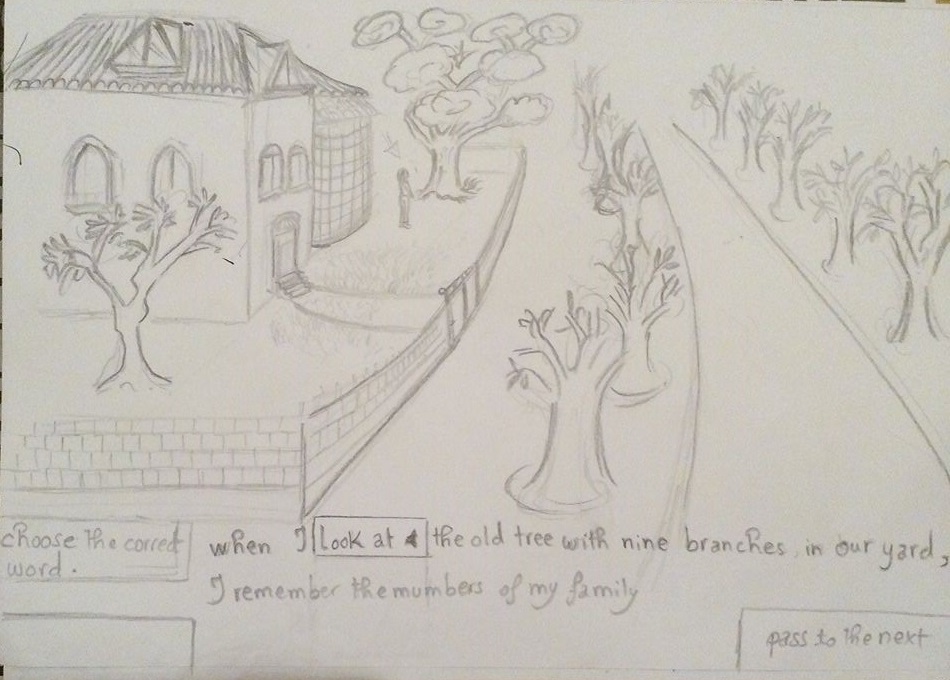 choose the correct
word.
when I look at the old tree with nine branches, in our yard,
I remember the mumbers of my family
pass to the next